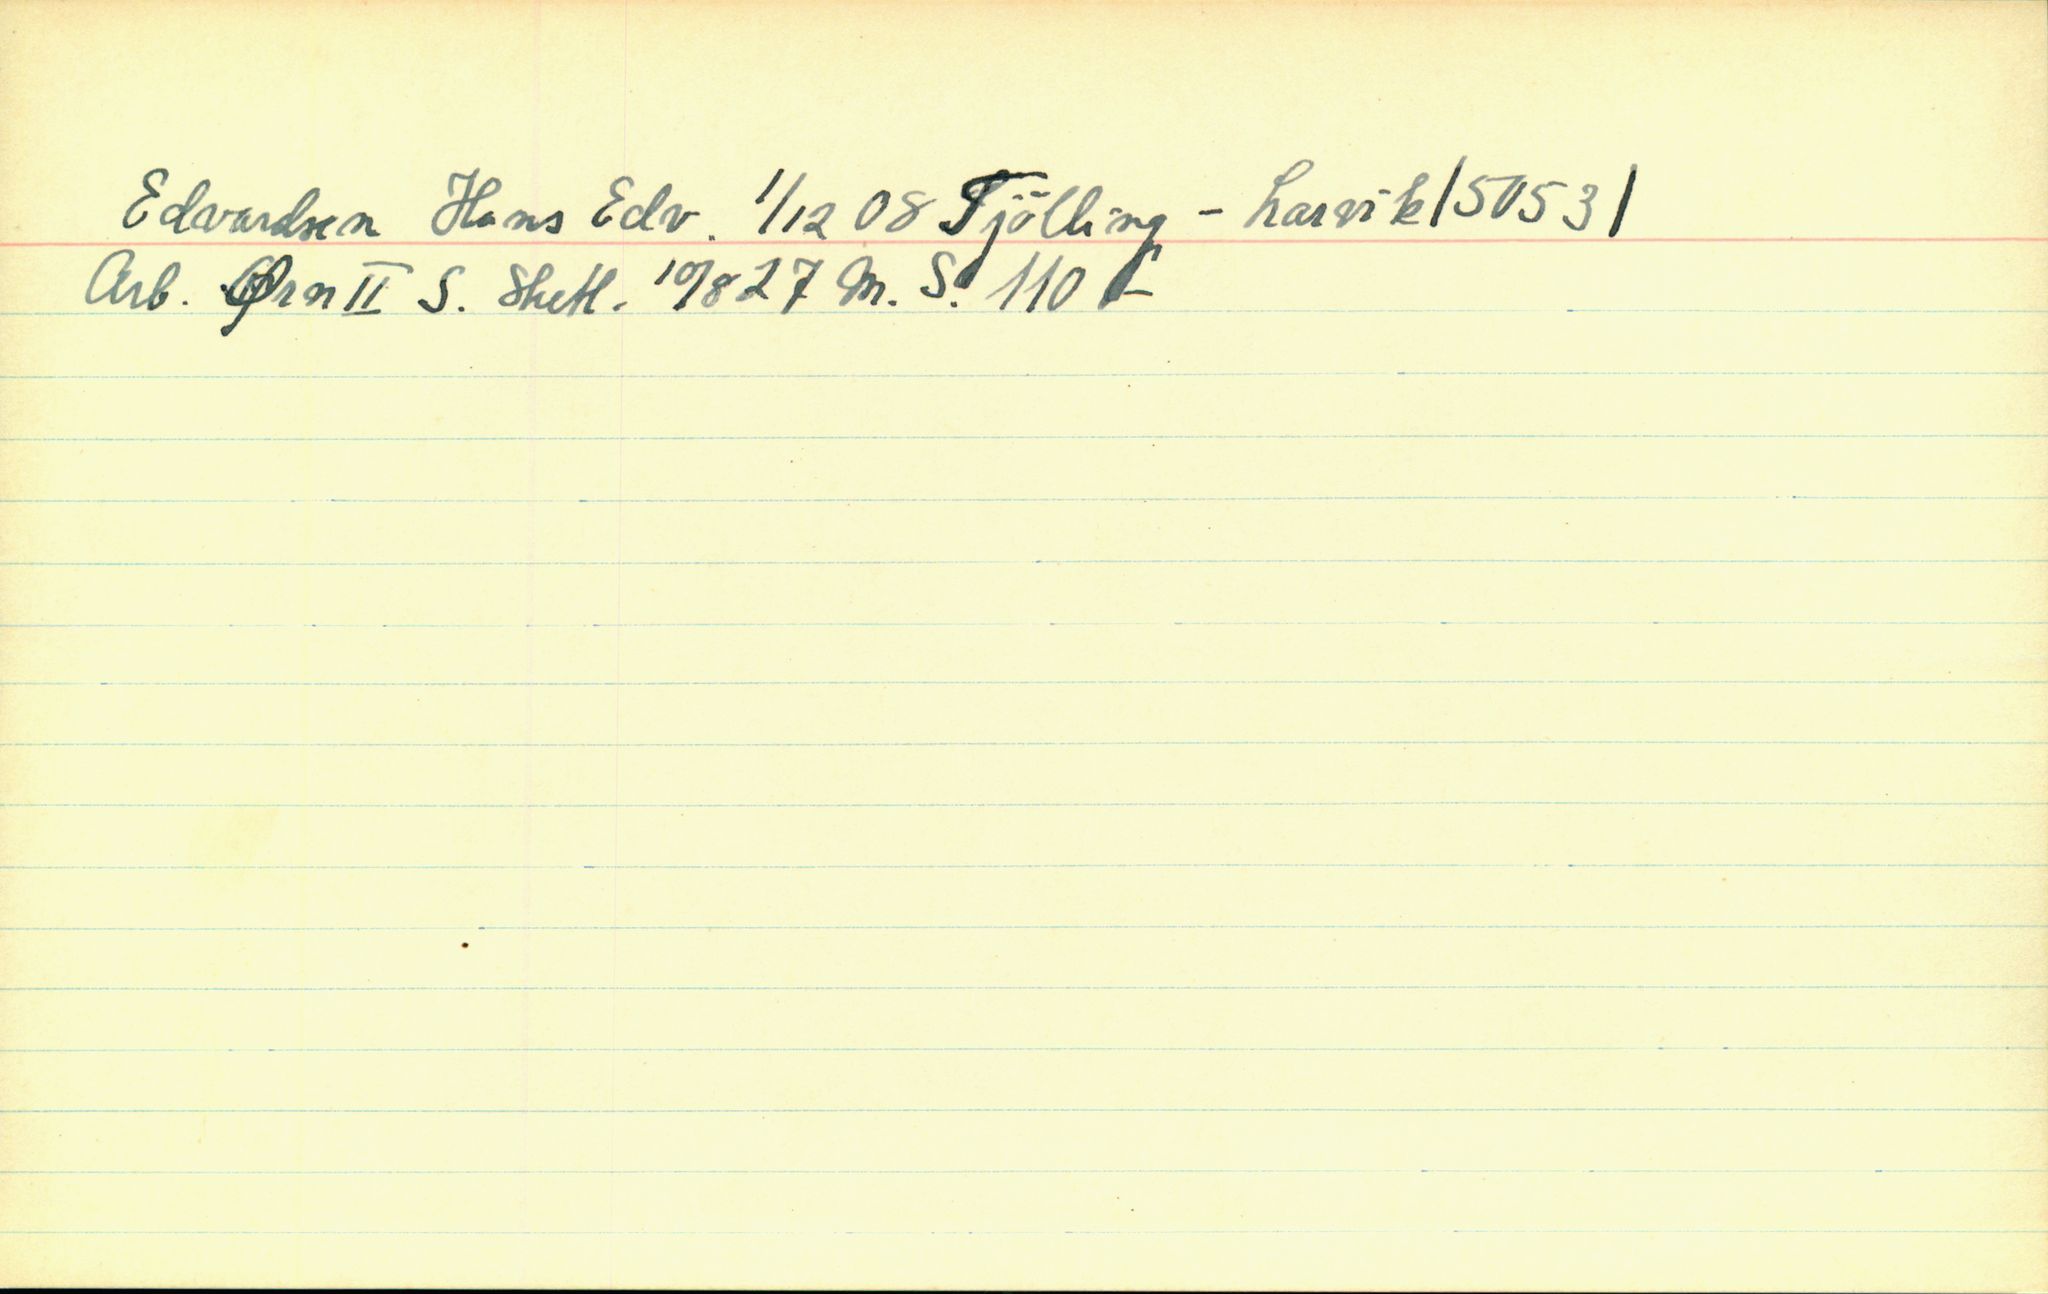 Edvardsen Hans Edv. 1/12 08 Tjölling - Larvik /5053/
Arb. Ørn II S. Shetl. 10/8 27 M. S. 110 -